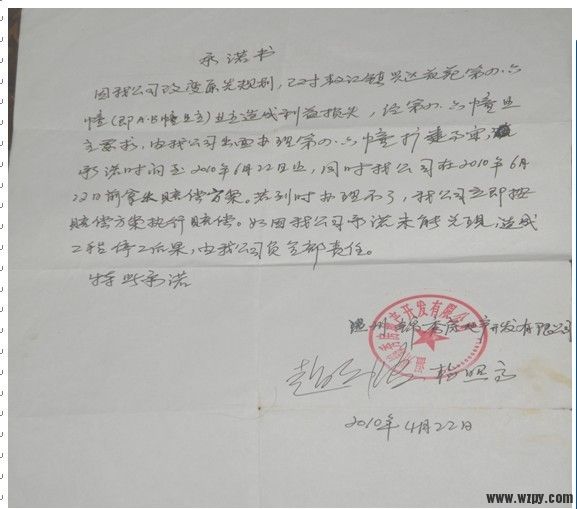 承诺书
因我公司改变原先规划，已对敖江镇兴达花苑第四、六
幢(即A、B幢业主)业主造成利益损失，经第四、六幢业
主要求，由我公司出面办理第四、六幢扩建不审，
承诺时间至2010年6月22日止，同时我公司在2010年6月
22日前拿出赔偿方案。若到时办理不了，我公司立即按
赔偿方案执行赔偿。如因我公司承诺未能兑现，造成
工程停工后果，由我公司负全部责任。
特此承诺
房地产开发有限公司
2010年4月22日
www.wzpy.com